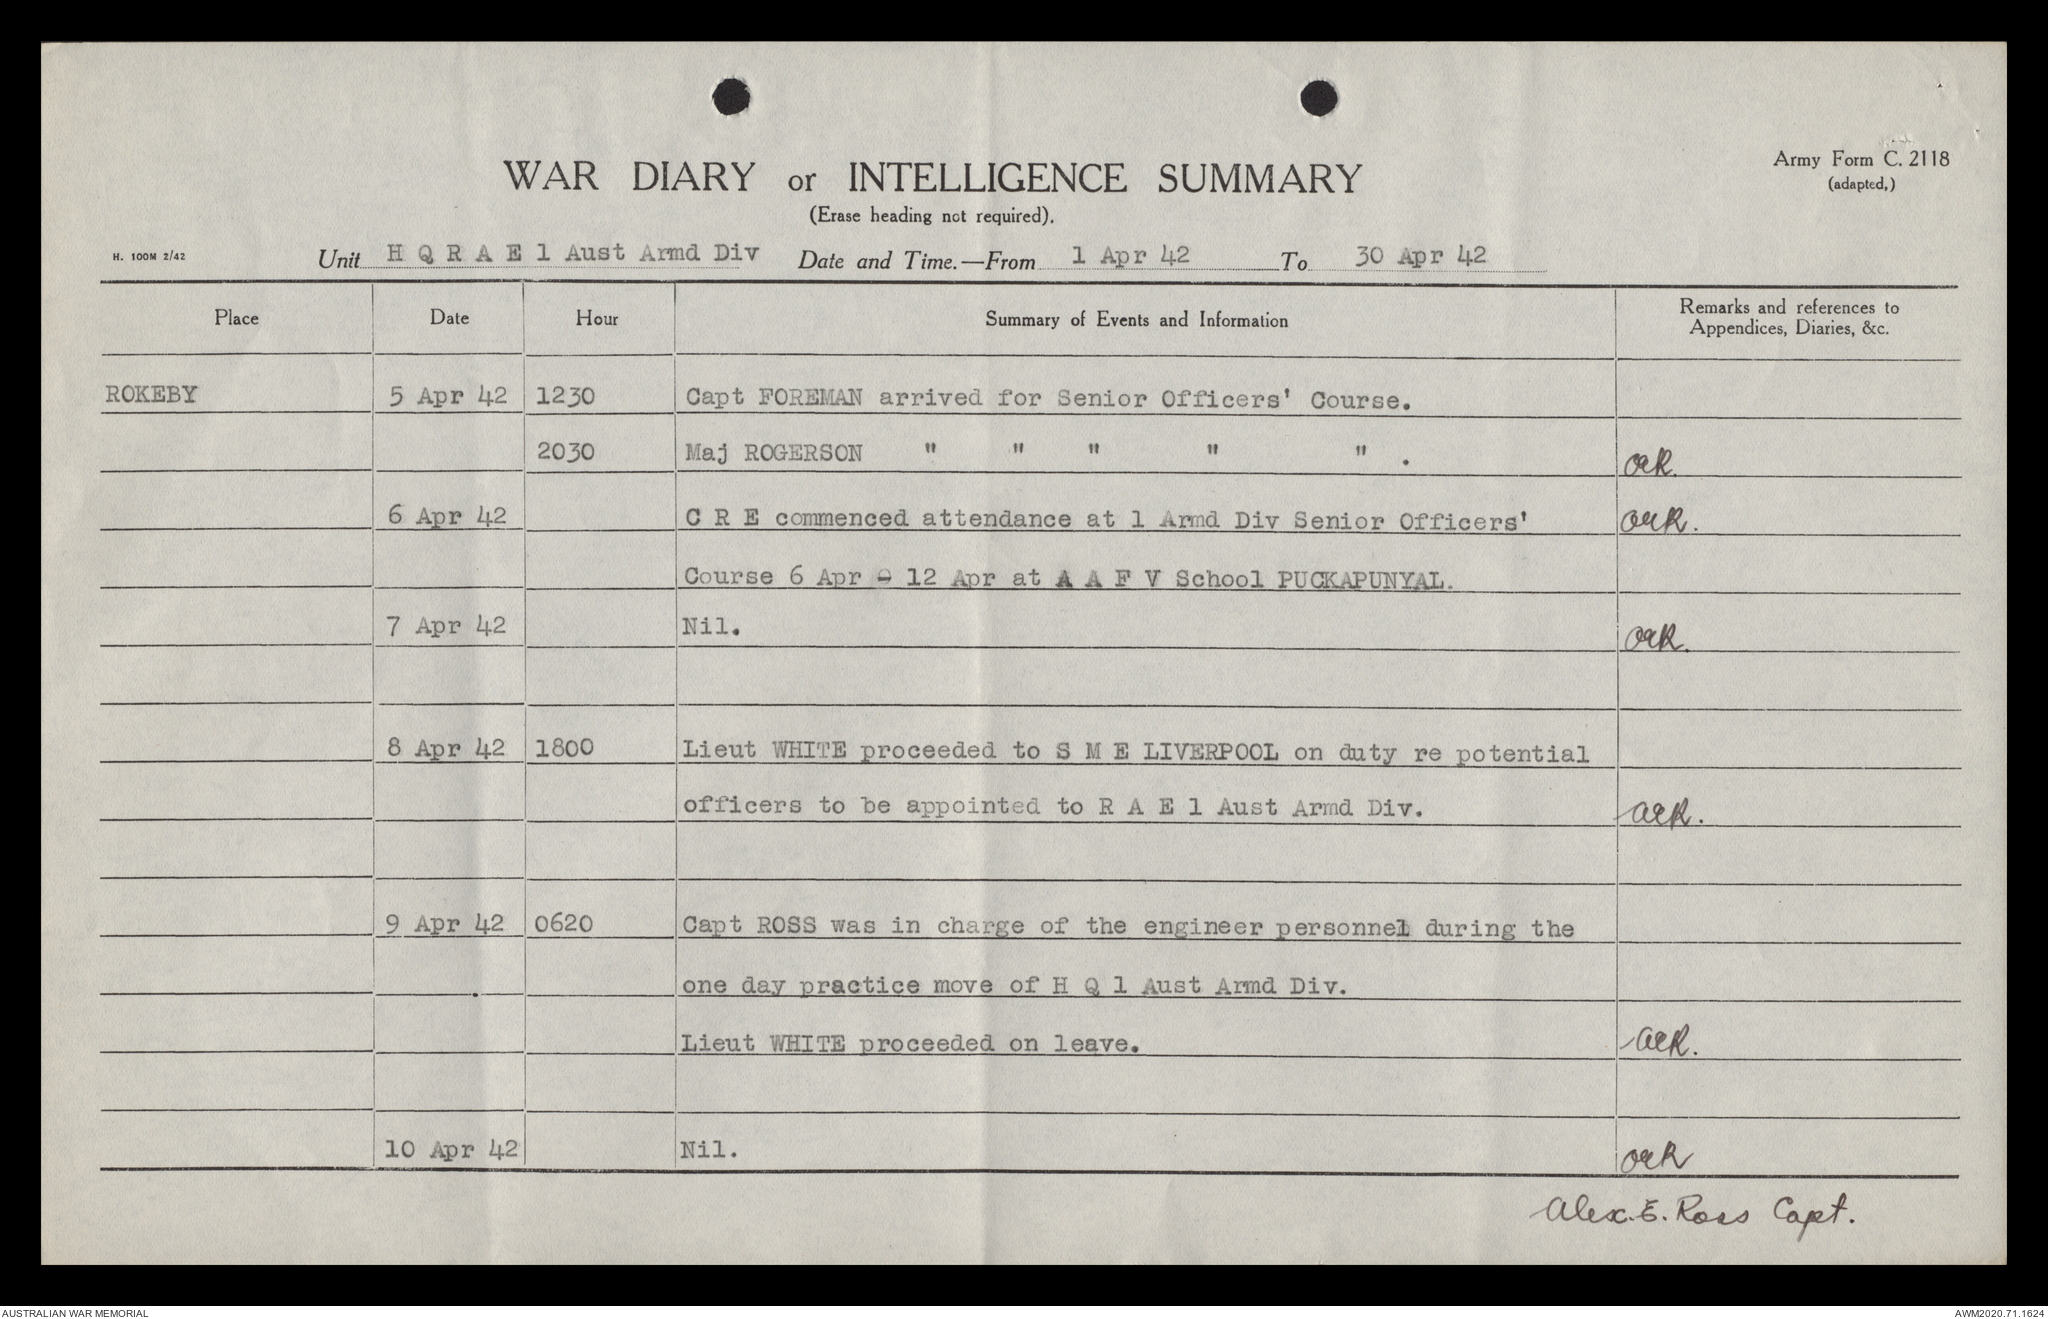 WAR DIARY or INTELLIGENCE SUMMARY
(Erase heading not required).
Army Form C. 2118
(adapted,)
H. 100M 2/42
Unit H Q R A E 1 Aust Armd Div Date and Time.—From 1 Apr 42 To 30 Apr 42
Place Date Hour Summary of Events and Information Remarks and references to Appendices, Diaries, &c.
ROKEBY 5 Apr 42 1230 Capt FOREMAN arrived for Senior Officers' Course.
2030 Maj ROGERSON " " " " " . AER.
6 Apr 42 C R E commenced attendance at 1 Armd Div Senior Officers' AER.
Course 6 Apr - 12 Apr at A A F V School PUCKAPUNYAL.
7 Apr 42 Nil. AER.
8 Apr 42 1800 Lieut WHITE proceeded to S M E LIVERPOOL on duty re potential
officers to be appointed to R A E 1 Aust Armd Div. AER.
9 Apr 42 0620 Capt ROSS was in charge of the engineer personnel during the
one day practice move of H Q 1 Aust Armd Div.
Lieut WHITE proceeded on leave. AER.
10 Apr 42 Nil. AER
Alex. E. Ross Capt.
AUSTRALIAN WAR MEMORIAL AWM2020.71.1624